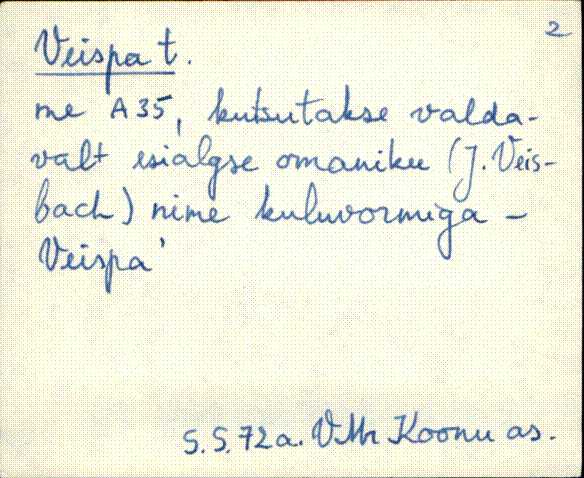 2
Veispa t.
me A 35, kutsutakse valda-
valt esialgse omaniku (J. Veis-
bach) nime kuluvormiga –
Veispa'
S. S. 72 a. VMr Koonu as.